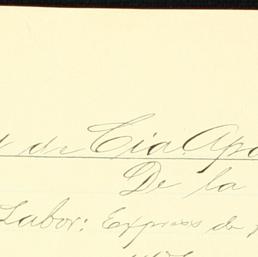 de Cia. Apo
De la
Labor: Express de